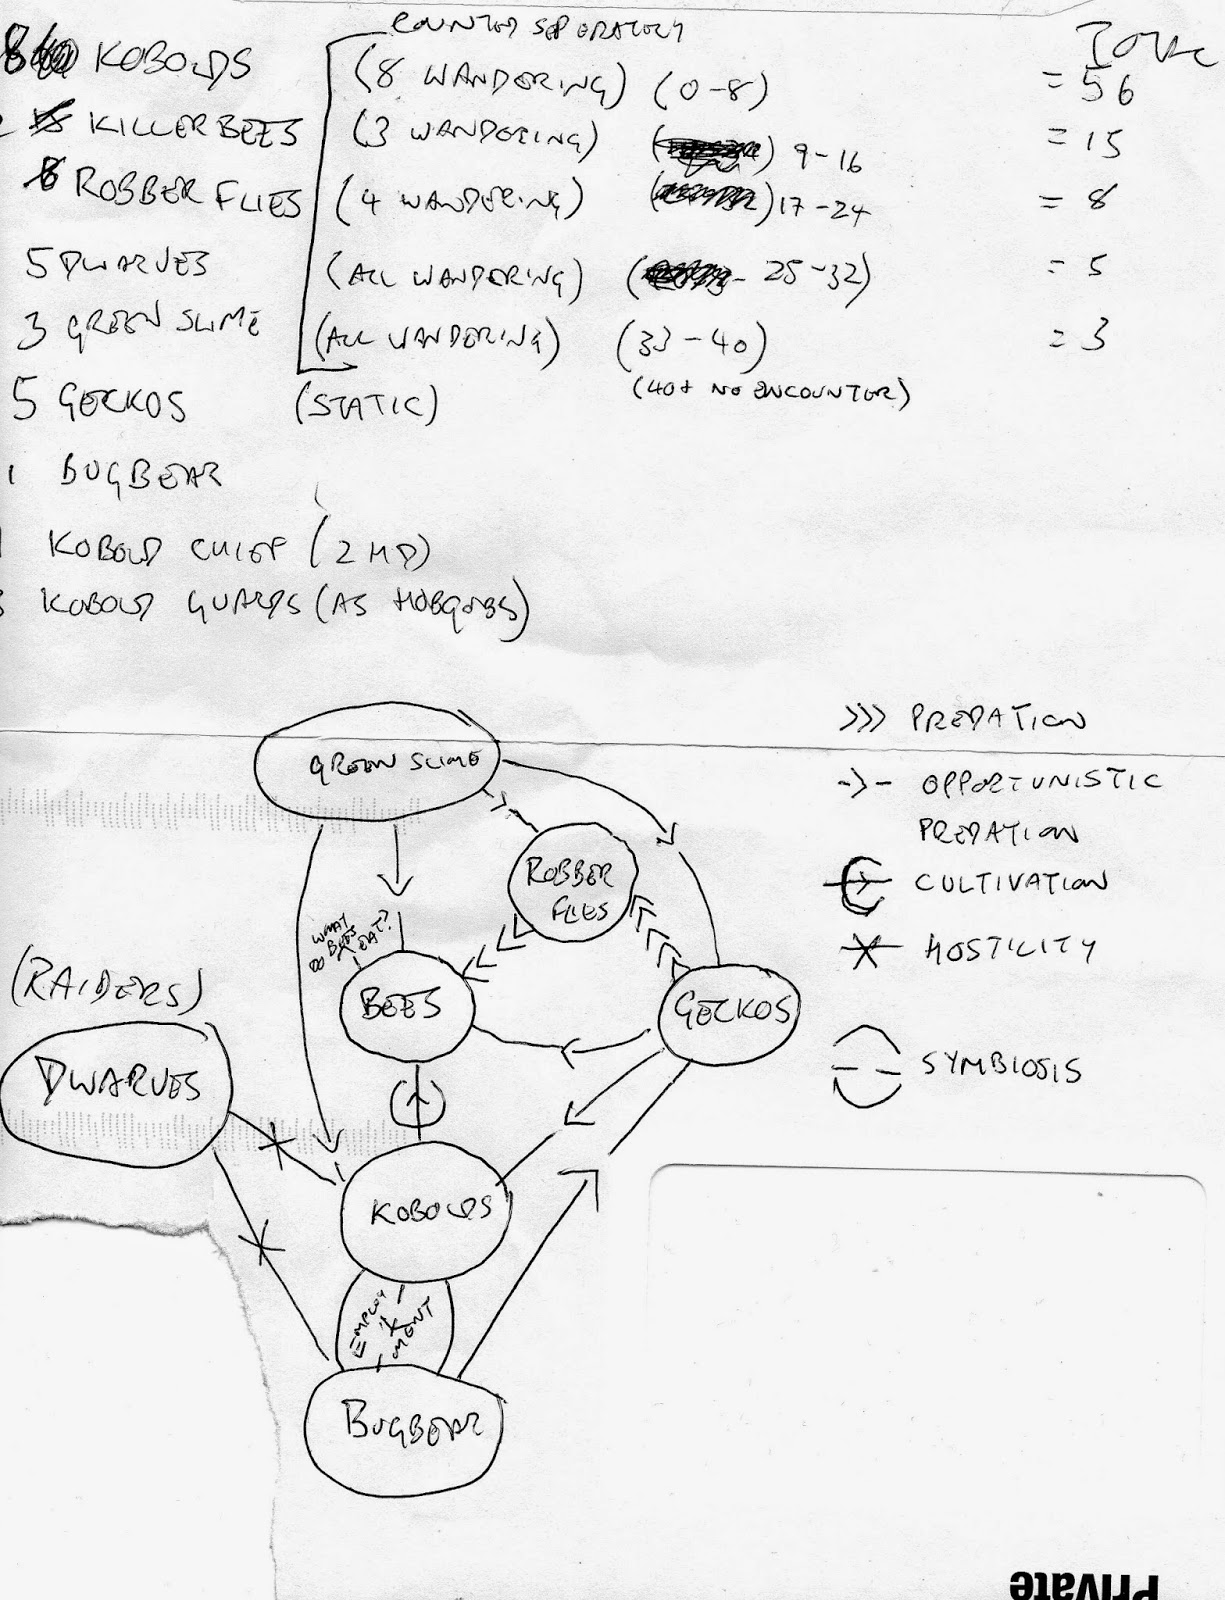 COUNTED SEPERATELY
TOTAL
KOBOLDS (8 WANDERING) (0-8) = 56
KILLER BEES (3 WANDERING) 9-16 = 15
ROBBER FLIES (4 WANDERING) 17-24 = 8
5 DWARVES (ALL WANDERING) 25-32) = 5
3 GREEN SLIME (ALL WANDERING) (33-40) = 3
(40+ NO ENCOUNTER)
5 GECKOS (STATIC)
1 BUGBEAR
KOBOLD CHIEF (2 HD)
KOBOLD GUARDS (AS HOBGOBS)
>>> PREDATION
GREEN SLIME
-> - OPPORTUNISTIC
PREDATION
ROBBER
FLIES
CULTIVATION
WHAT
DO BEES EAT?
HOSTILITY
(RAIDERS)
BEES
GECKOS
DWARVES
SYMBIOSIS
KOBOLDS
EMPLOY
MENT
BUGBEAR
Private